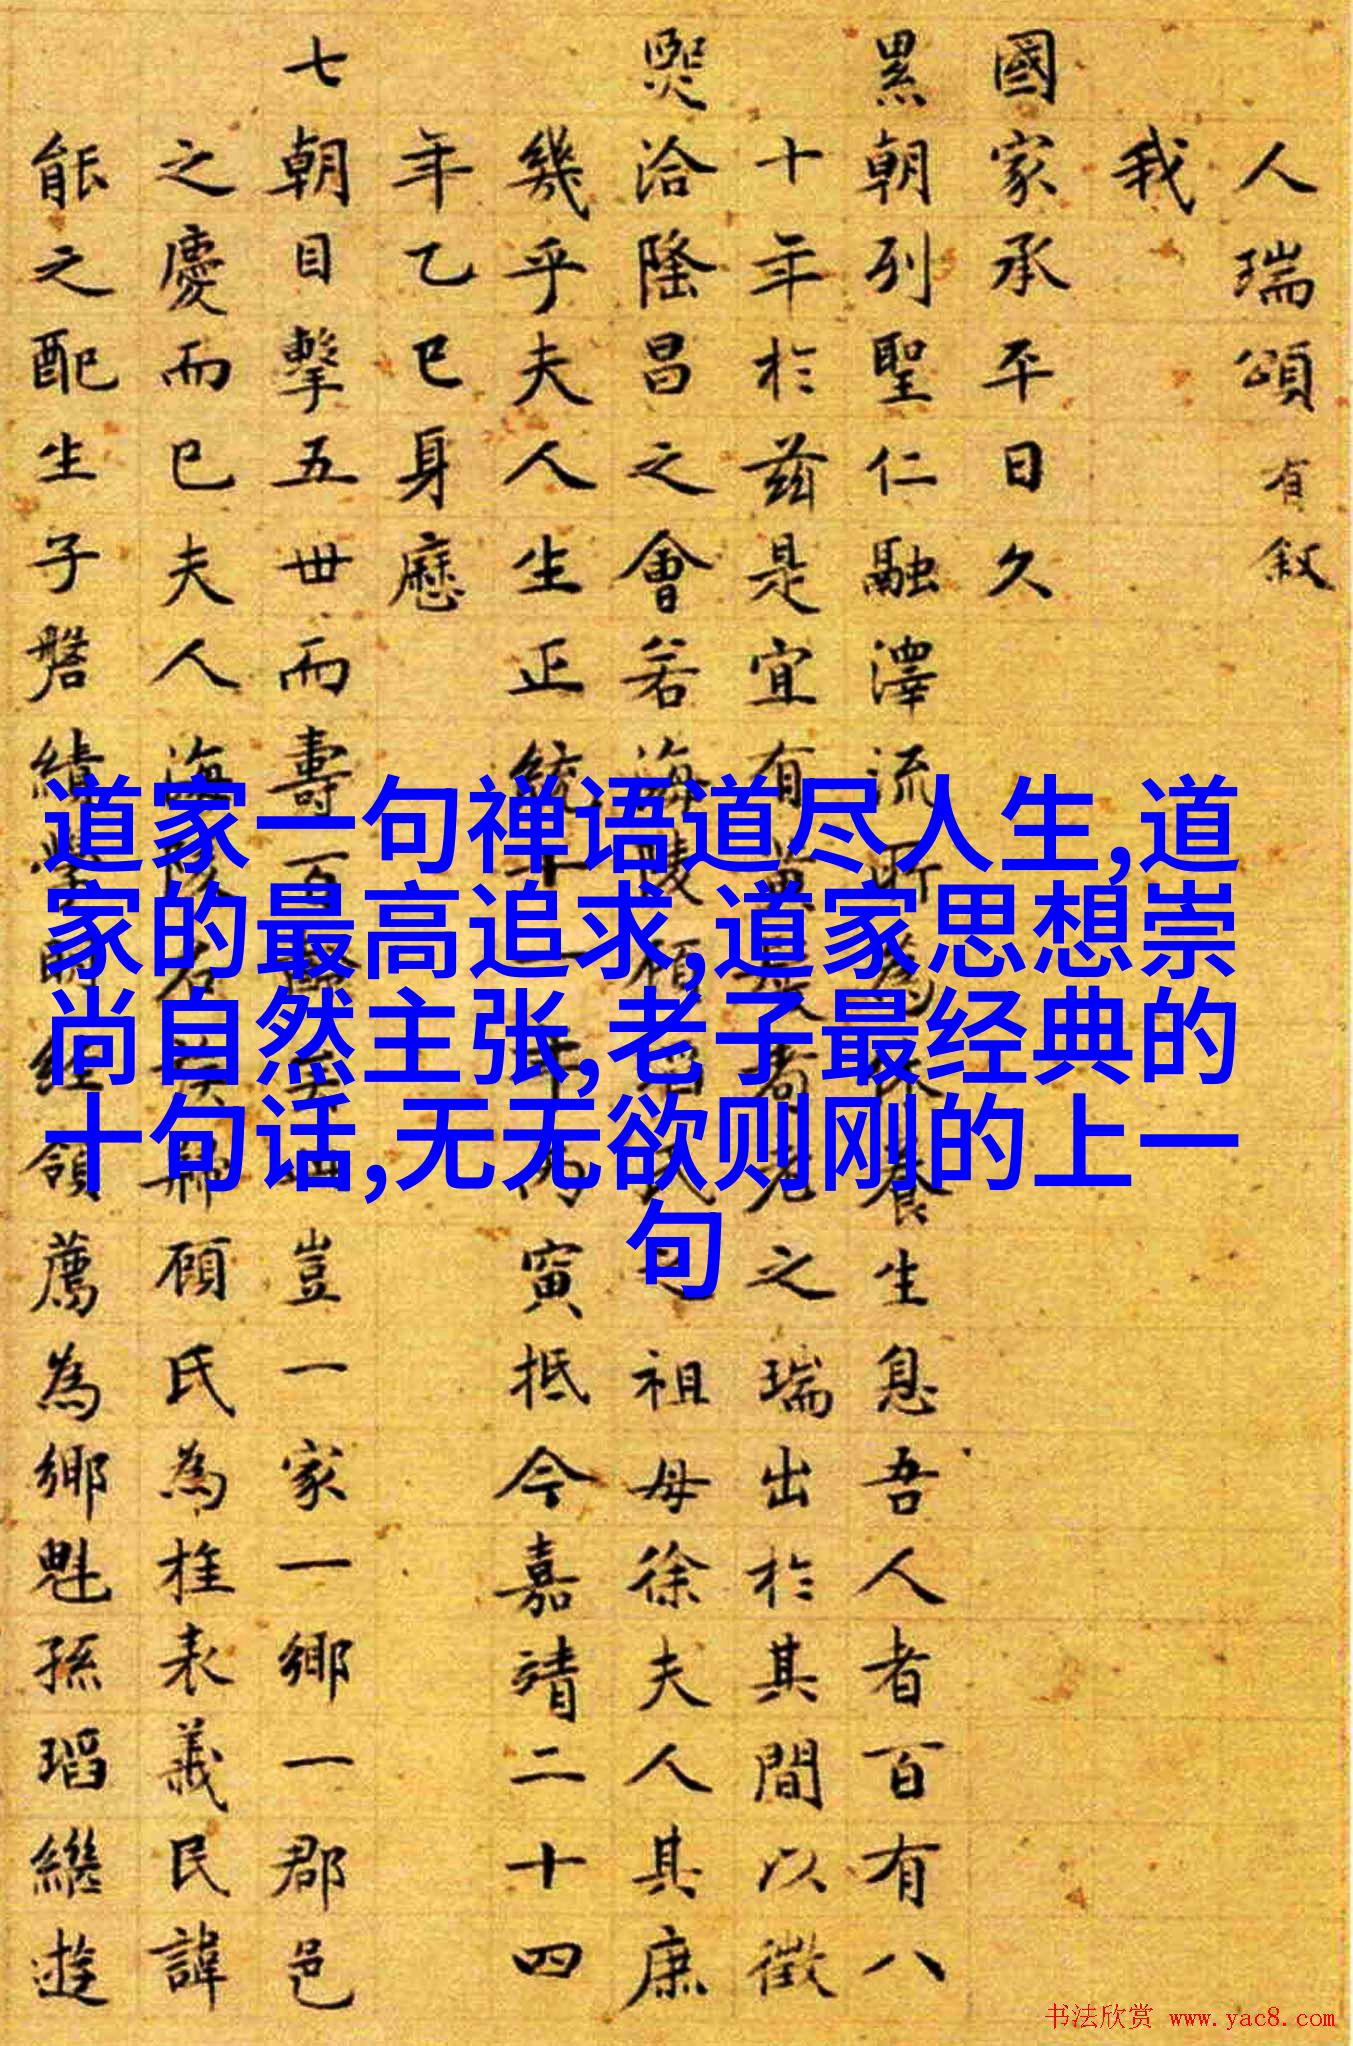 人瑞頌有叙
我
國家承平日久
累朝列聖仁融澤流所為休養生息吾人者百有八
十年於茲是宜有黃耇之瑞出於其間以徵
熙洽隆昌之會若海陵顧氏之祖母徐夫人其庶
幾乎夫人生正統十一年丙寅抵今嘉靖二十四
年乙巳已身歷
七朝目擊五世而壽百齡豈一家一鄉一郡邑
之慶而已夫人海陵名族州顧氏為桂表義民諱
能之配生子磐績學明經領薦為鄉魁孫瑫繼遊
道家一句禅语道尽人生,道
家的最高追求,道家思想崇
尚自然主张,老子最经典的
十句话,无无欲则刚的上一
句
书法欣赏 www.yac8.com